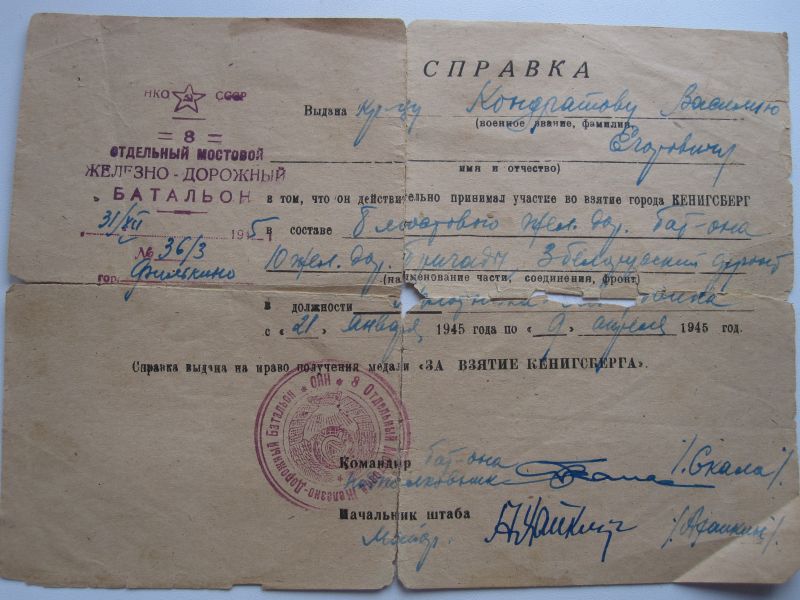 СПРАВКА
НКО СССР
= 8 =
ОТДЕЛЬНЫЙ МОСТОВОЙ
ЖЕЛЕЗНО-ДОРОЖНЫЙ
БАТАЛЬОН
31/XII 1945
№ 36/3
гор. Филькино
Выдана кр-цу Кондратову Василию
(военное звание, фамилия
Егоровичу
имя и отчество)
в том, что он действительно принимал участие во взятие города КЕНИГСБЕРГ
в составе 8 мостового жел. дор. бат-она
10 жел. дор. бригады 3 белорусский фронт
(наименование части, соединения, фронт)
в должности
с «21» января 1945 года по «9» апреля 1945 год.
Справка выдана на право получения медали «ЗА ВЗЯТИЕ КЕНИГСБЕРГА».
НКО * 8 Отдельный Мостовой Железно-Дорожный Батальон *
Командир бат-она
/Скала/
Начальник штаба
Майор